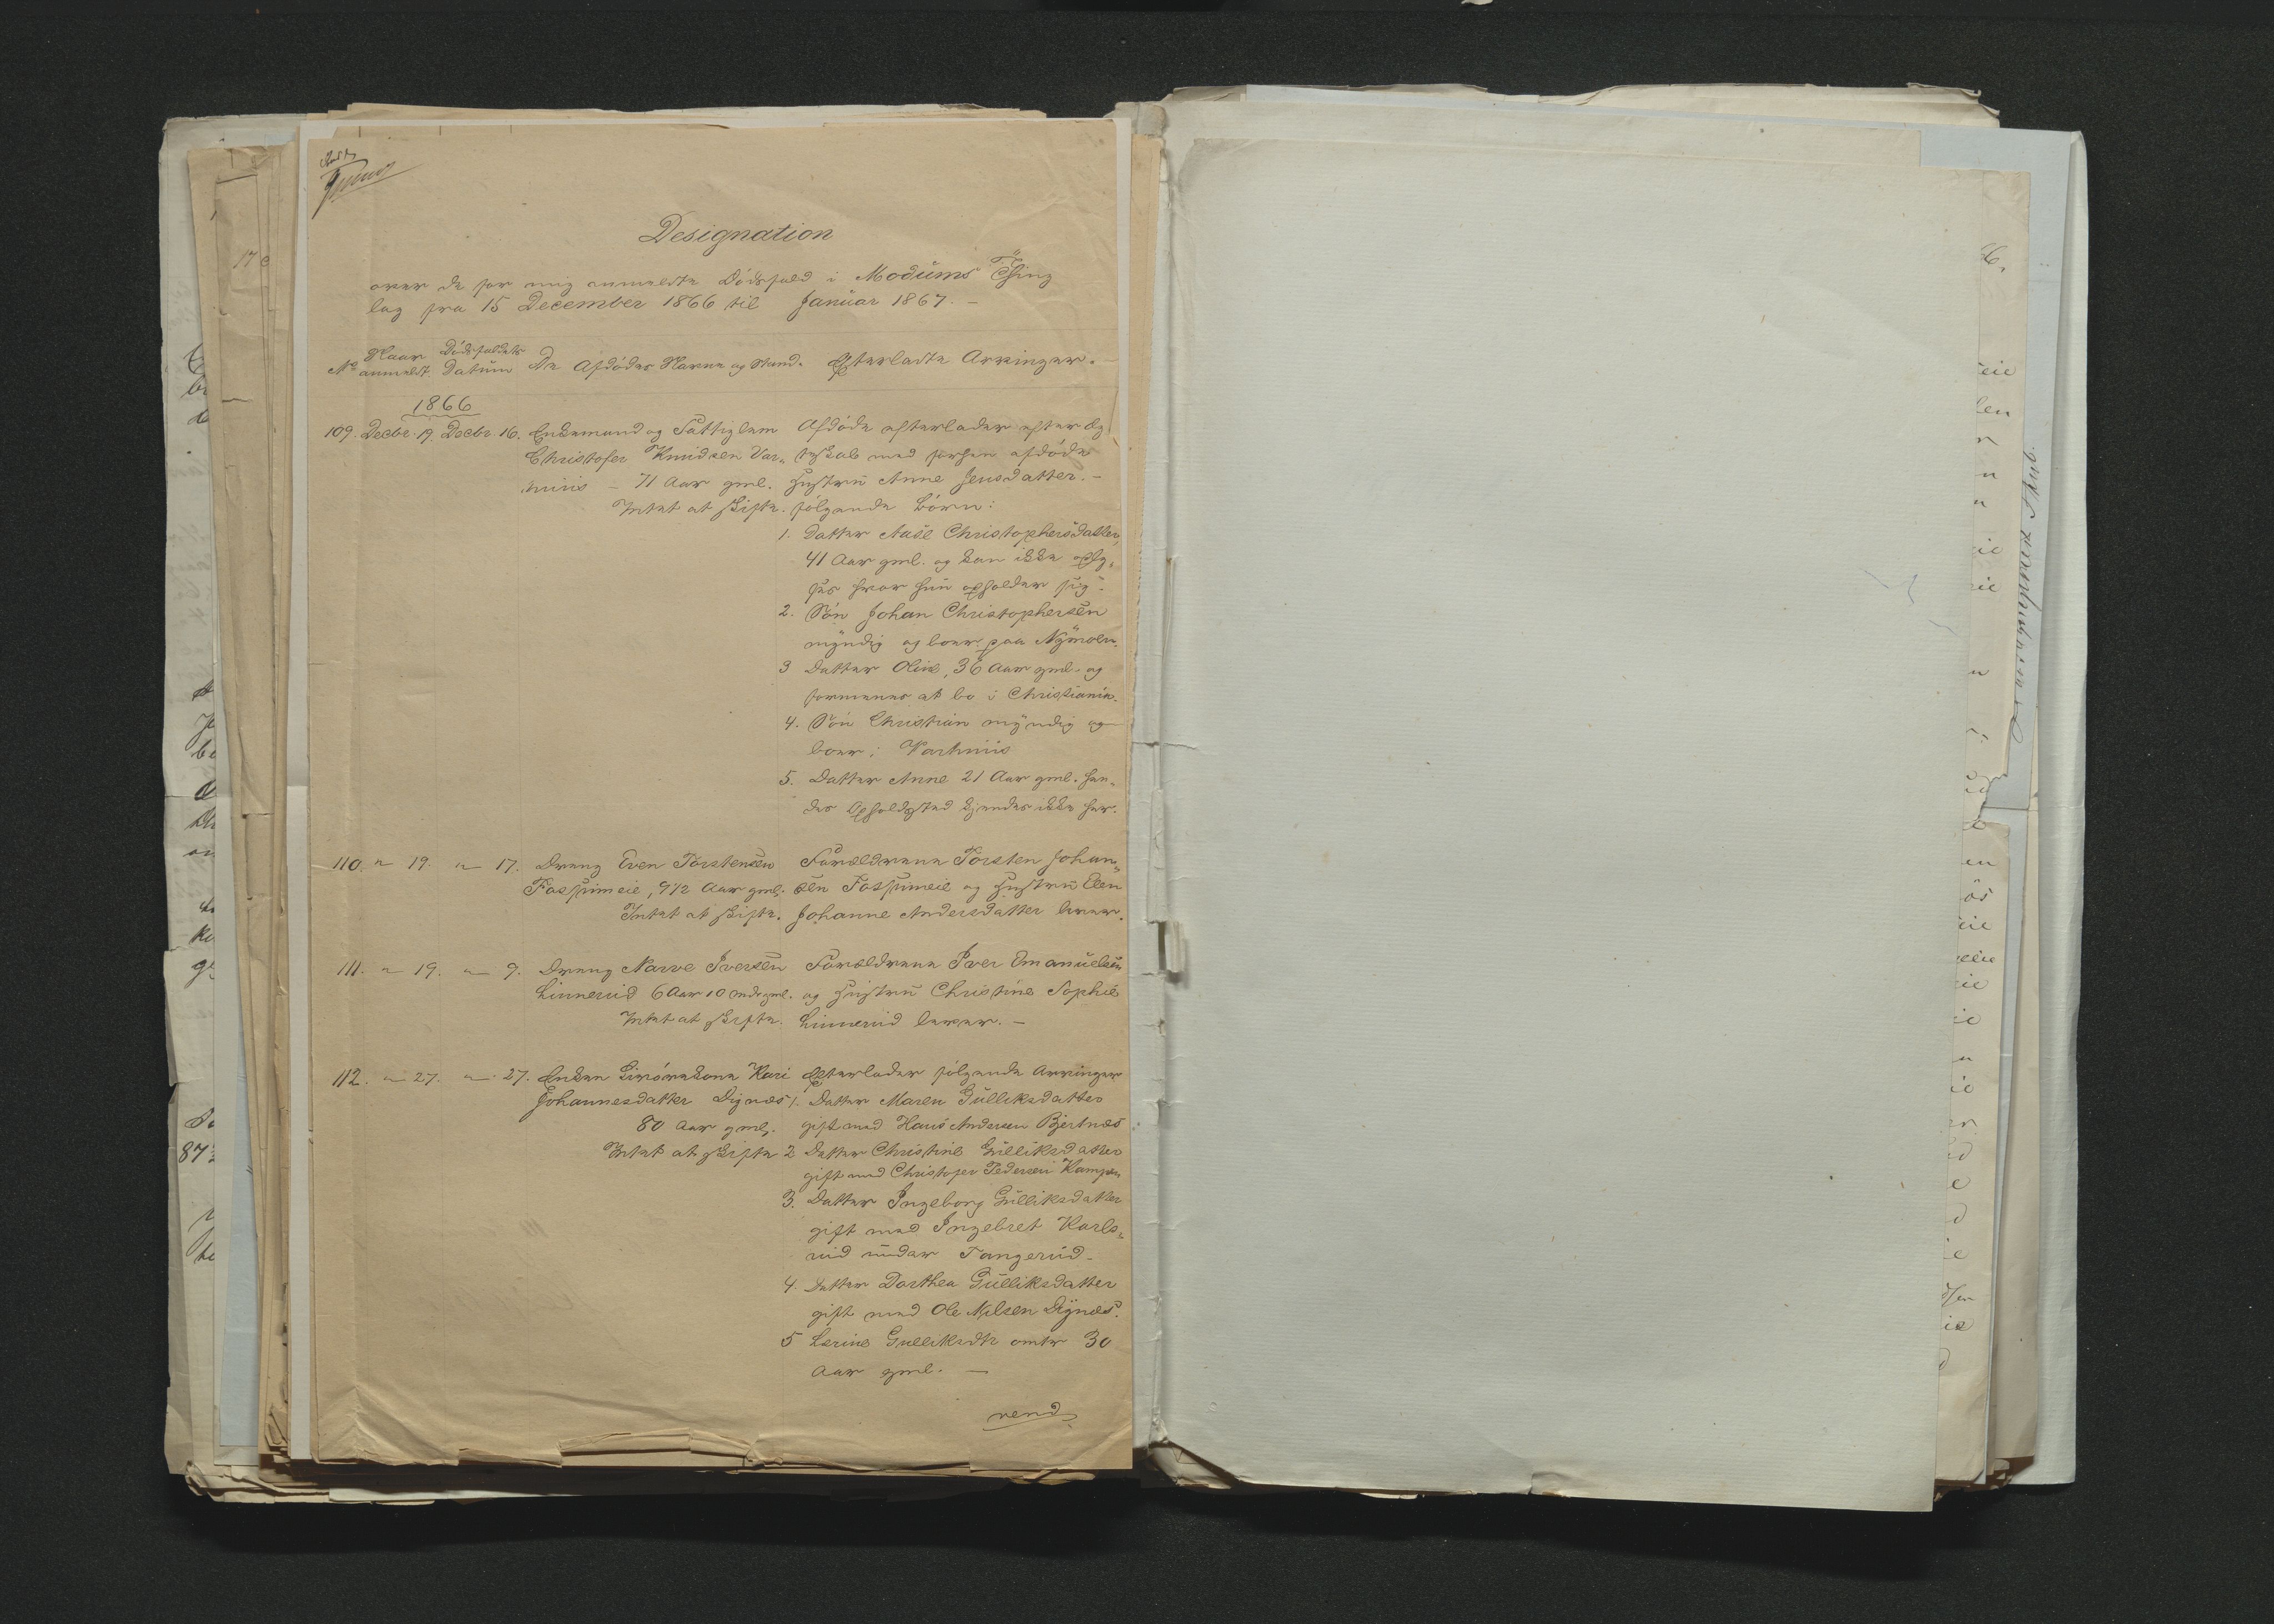 Designation
over de for mig anmeldte Dödsfald i Modums Thing
lag fra 15 December 1866 til Januar 1867. –
No Naar anmeldt. Dödsfaldets Datum De Afdödes Navne og Stand. Efterladte Arvinger. –
1866
109. Decbr. 19. Decbr. 16. Enkemand og Fattiglem Afdöde efterlader efter Æg
Christofer Knudsen Var„ teskab med forhen afdöde
– 71 Aar gml. Hustru Anne Jensdatter. –
Intet at skifte. fölgende Börn:
1. Datter Aase Christophersdatter,
41 Aar gml. og kan ikke oply„
ses hvor hun opholder sig.
2. Sön Johan Christophersen
myndig og boer paa Nymoen.
3 Datter Oline, 36 Aar gml. og
formenes at bo i Christiania.
4. Sön Christian myndig og
boer i
5. Datter Anne 21 Aar gml. hen„
des Opholdsted kjendes ikke her.
110. " 19. " 17. Dreng Even Torstensen Forældrene Torsten Johan„
9 1/2 Aar gml. sen og Hustru Elen
Intet at skifte. Johanne Andersdatter lever.
111. " 19. " 9. Dreng Narve Iversen Forældrene Iver Emanuelsen
Linnerud 6 Aar 10 Mdr gml. og Hustru Christine Sophie
Intet at skifte. Linnerud lever. –
112. " 27. " 27. Enken Kari Efterlader fölgende Arvinger
Johannesdatter Dignæs 1. Datter Maren Gulliksdatter
80 Aar gml. gift med Hans Andersen Bjertnæs
Intet at skifte 2 Datter Christine Gulliksdatter
gift med Christofer Pedersen Kampen
3. Datter Ingeborg Gulliksdatter
gift med Ingebret Karls„
rud under Tangerud.
4. Datter Dorthea Gulliksdatter
gift med Ole Nilsen Dignæs.
5 Lerine Gulliksdtr omtr 30
Aar gml. –
vend